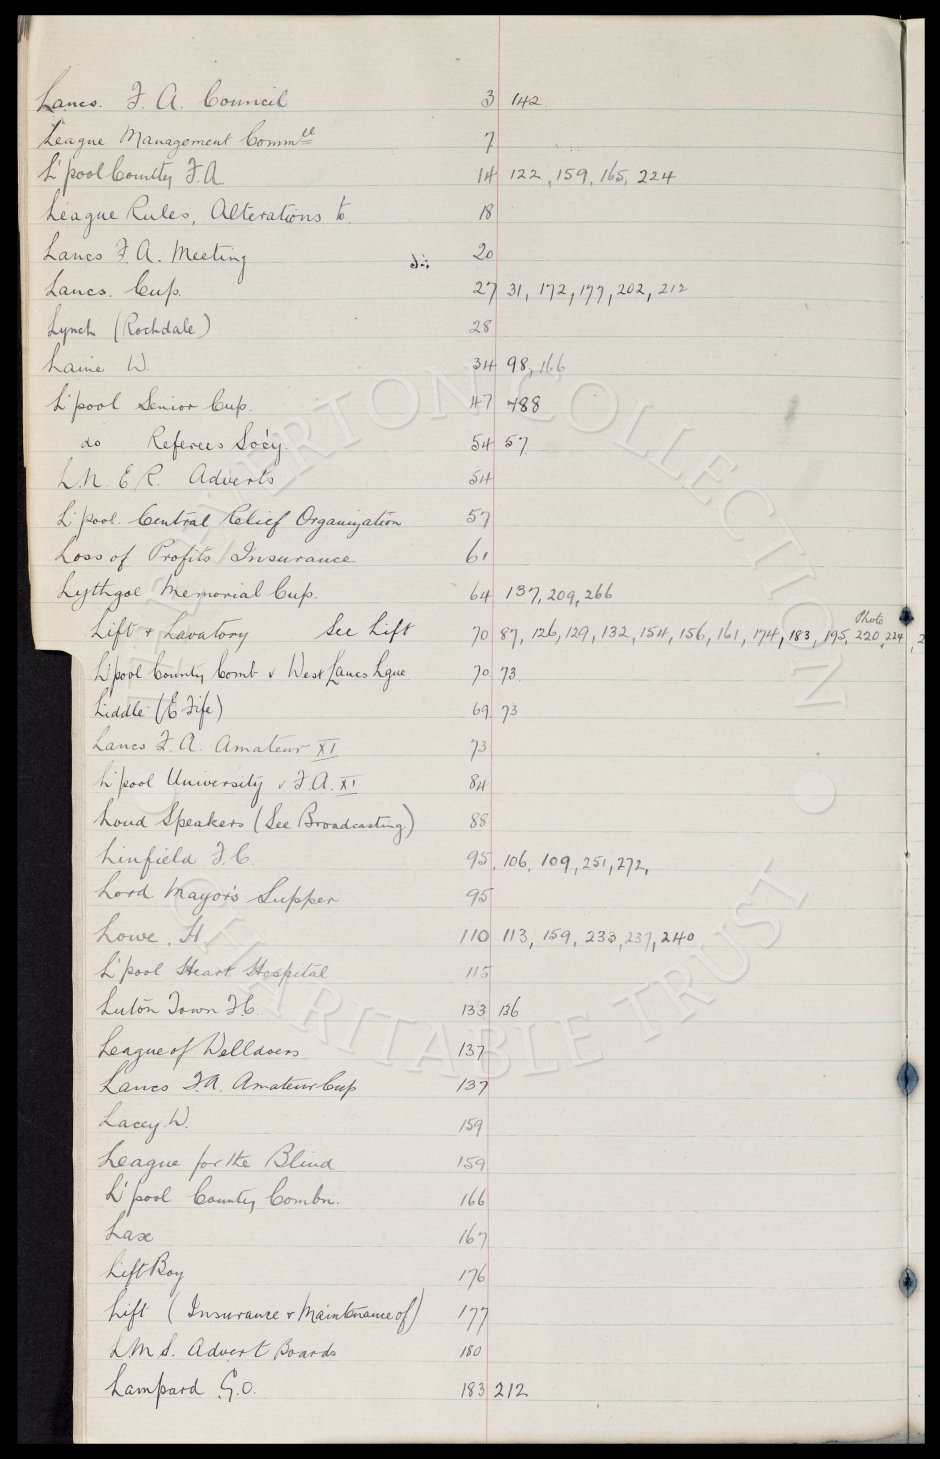 Lancs. F. A. Council 3 142
League Management Commee 7
L'pool County F.A. 14 122, 159, 165, 224
League Rules, Alterations to. 18
Lancs F. A. Meeting 20
Lancs. Cup. 27 31, 172, 177, 202, 212
Lynch (Rochdale) 28
Laine W. 34 98, 166
L'pool Senior Cup. 47 488
do Referees Socy. 54 57
L.N.E.R. Adverts 54
L'pool. Central Relief Organization 57
Loss of Profits Insurance 61
Lythgoe Memorial Cup. 64 137, 209, 266
Photo
Lift & Lavatory See Lift 70 87, 126, 129, 132, 154, 156, 161, 174, 183, 195, 220, 224, 2
L'pool County Comb v West Lancs Lgue 70 73
Liddle (E Fife) 69 73
Lancs F. A. Amateur XI 73
L'pool University v F.A. XI 84
Loud Speakers (See Broadcasting) 88
Linfield F.C. 95, 106, 109, 251, 272,
Lord Mayor's Supper 95
Lowe, H. 110 113, 159, 233, 237, 240
L'pool Heart Hospital 115
Luton Town F.C. 133 136
League of Welldoers 137
Lancs F.A. Amateur Cup 137
Lacey W. 159
League for the Blind 159
L'pool County Combn. 166
Lax 167
Lift Boy 176
Lift (Insurance & Maintenance of) 177
L.M.S. Advert Boards 180
Lampard G.O. 183 212
THE EVERTON COLLECTION
CHARITABLE TRUST